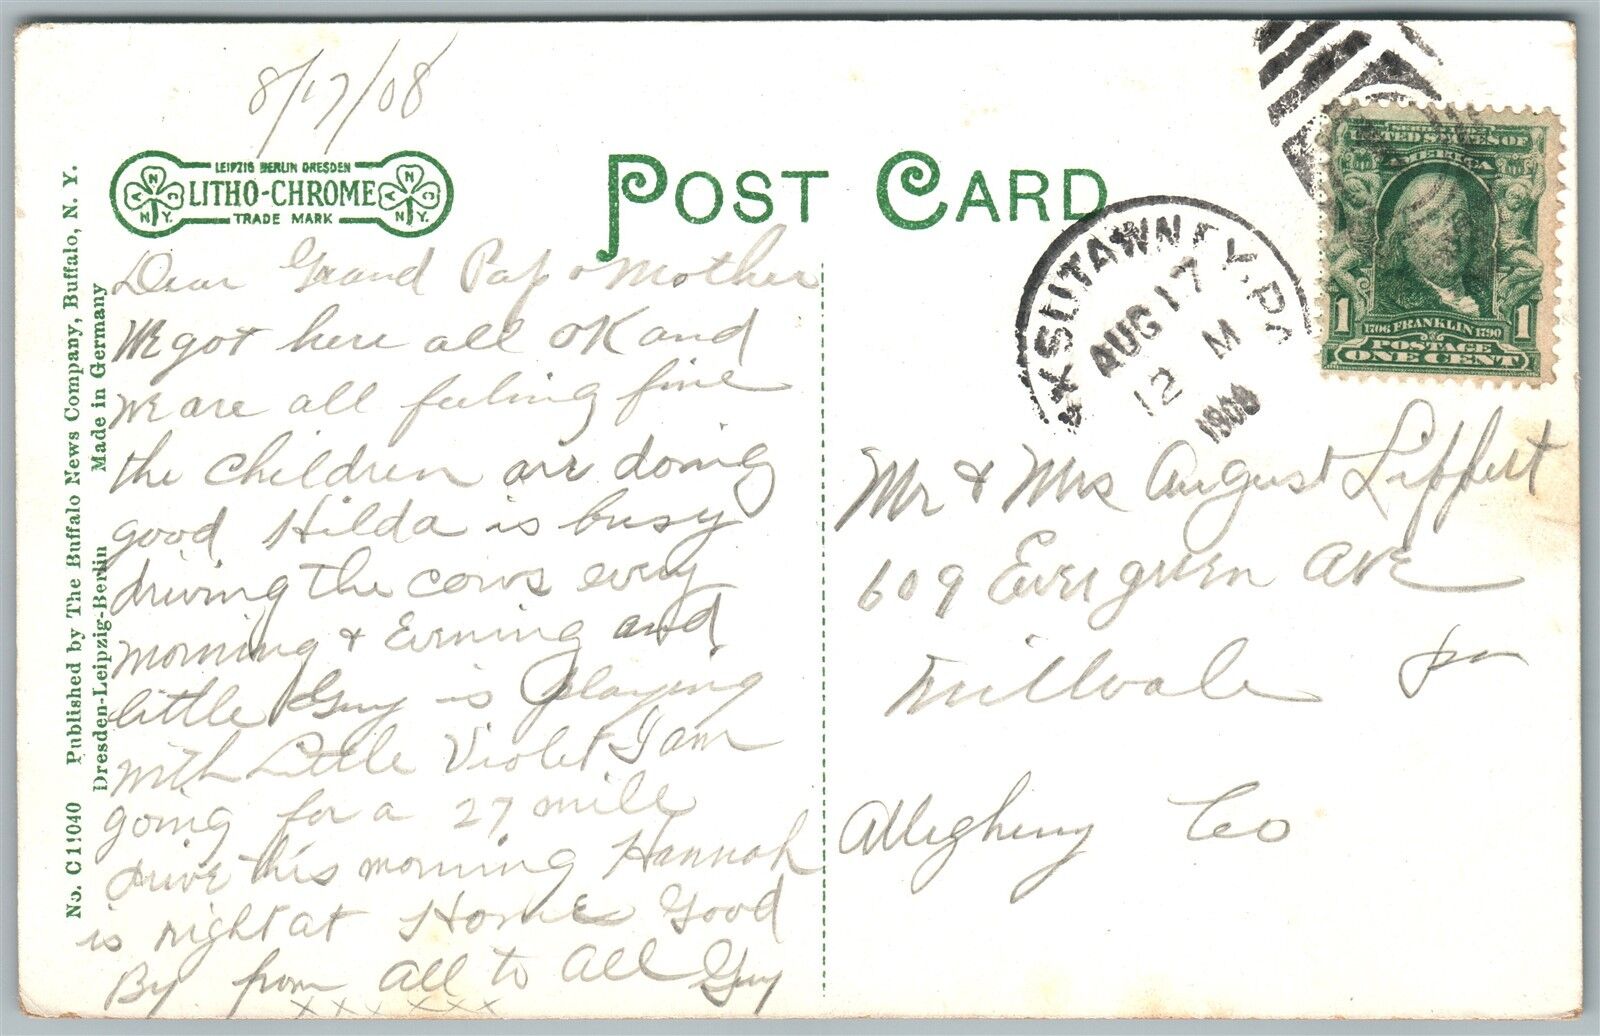 8/17/08
LEIPZIG BERLIN DRESDEN
LITHO-CHROME
TRADE MARK
POST CARD
No. C11040 Published by The Buffalo News Company, Buffalo, N. Y.
Dresden-Leipzig-Berlin Made in Germany
Dear Grand Pap & Mother
We got here all OK and
we are all feeling fine
the children are doing
good Hilda is busy
driving the cows every
morning & Evening and
little Guy is playing
with Little Violet I am
going for a 27 mile
drive this morning Hannah
is right at Home Good
By from all to all Guy
x x x x x x
XSUTAWNEY, PA
AUG 17
12 M
1908
UNITED STATES OF
AMERICA
1 1706 FRANKLIN 1790 1
POSTAGE
ONE CENT
Mr & Mrs August Lippert
609 Evergreen Ave
Millvale Pa
Allegheny Co